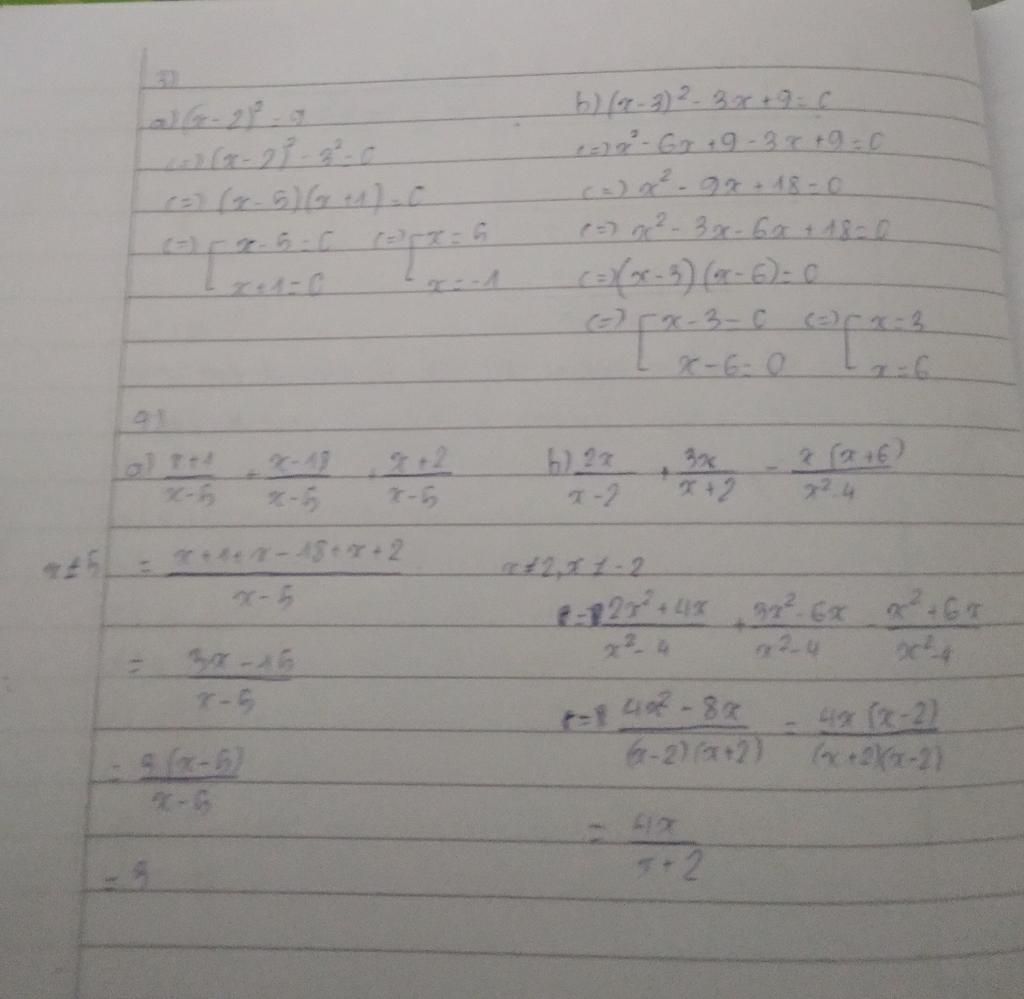 3)
a) (x-2)² = 9
<=> (x-2)² - 3² = 0
<=> (x-5)(x+1) = 0
<=> [ x-5=0 <=> [ x=5
x+1=0 x=-1
b) (x-3)² - 3x+9=0
<=> x² - 6x+9-3x+9=0
<=> x² - 9x+18=0
<=> x² - 3x-6x+18=0
<=> (x-3)(x-6)=0
<=> [ x-3=0 <=> [ x=3
x-6=0 x=6
4)
a) (x+1)/(x-5) + (x-18)/(x-5) + (x+2)/(x-5)
x≠5 = (x+1+x-18+x+2)/(x-5)
= (3x-15)/(x-5)
= 3(x-5)/(x-5)
= 3
b) 2x/(x-2) + 3x/(x+2) - x(x+6)/(x²-4)
x≠2, x≠-2
= (2x²+4x)/(x²-4) + (3x²-6x)/(x²-4) - (x²+6x)/(x²-4)
= (4x²-8x)/((x-2)(x+2)) = 4x(x-2)/((x+2)(x-2))
= 4x/(x+2)